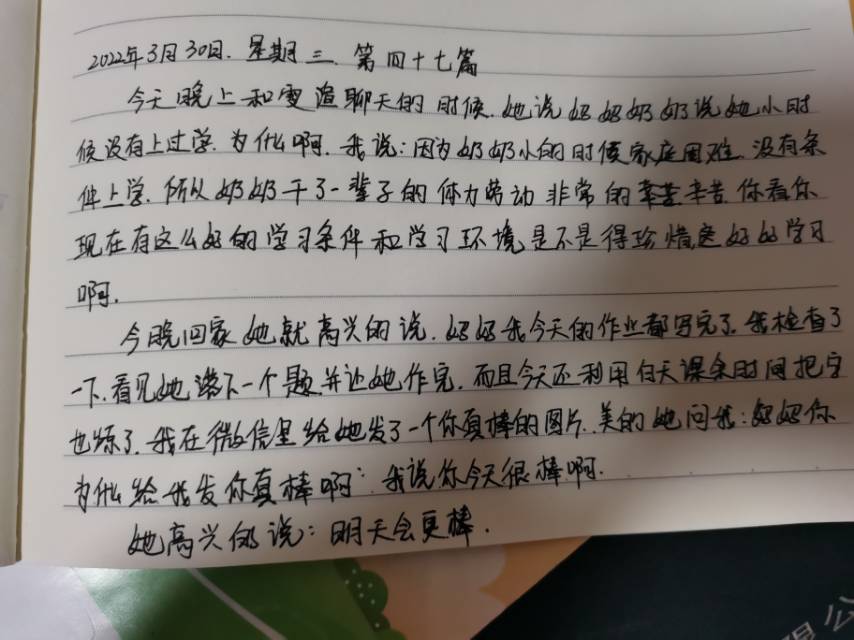 2022年3月30日.星期三 第四十七篇
今天晚上和雯渲聊天的时候.她说妈妈奶奶说她小时
候没有上过学.为什么啊.我说:因为奶奶小的时候家庭困难.没有条
件上学.所以奶奶干了一辈子的体力劳动 非常的辛苦 你看你
现在有这么好的学习条件和学习环境是不是得珍惜 好好学习
啊.
今晚回家她就高兴的说.妈妈我今天的作业都写完了.我检查了
一下.看见她落下一个题并让她作完.而且今天还利用白天课余时间把字
也练了.我在微信里给她发了一个你真棒的图片.美的她问我:妈妈你
为什么给我发你真棒啊.我说你今天很棒啊.
她高兴的说:明天会更棒.
公